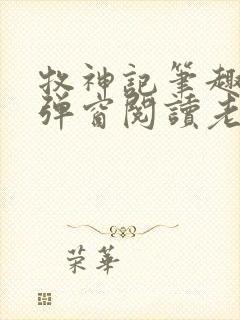 牧神記筆趣
彈窗閱讀老
荣華